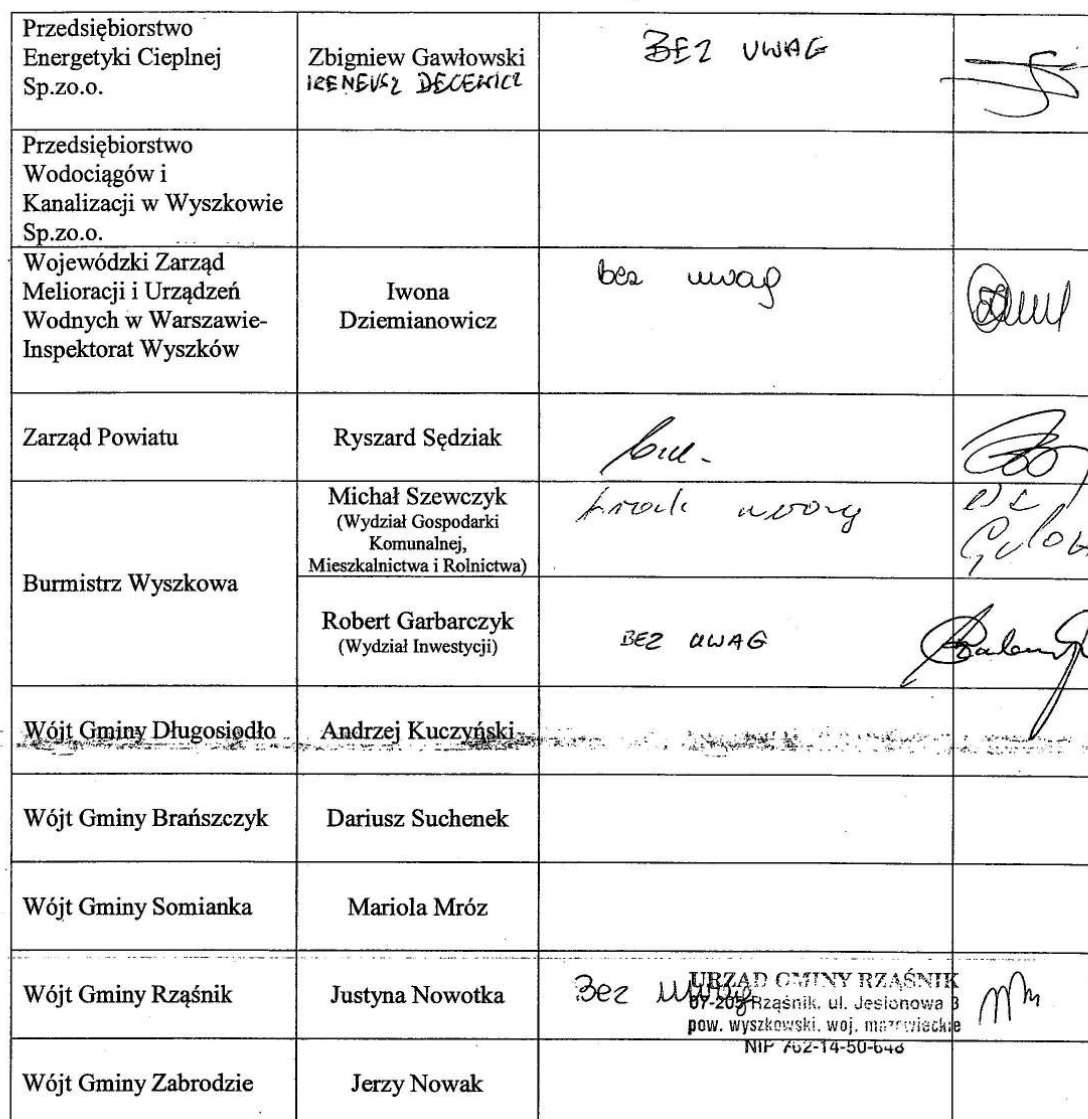 Przedsiębiorstwo
Energetyki Cieplnej
Sp.zo.o.
Zbigniew Gawłowski
IRENEUSZ
BEZ UWAG
Przedsiębiorstwo
Wodociągów i
Kanalizacji w Wyszkowie
Sp.zo.o.
Wojewódzki Zarząd
Melioracji i Urządzeń
Wodnych w Warszawie-
Inspektorat Wyszków
Iwona
Dziemianowicz
bez uwag
Zarząd Powiatu
Ryszard Sędziak
Burmistrz Wyszkowa
Michał Szewczyk
(Wydział Gospodarki
Komunalnej,
Mieszkalnictwa i Rolnictwa)
brak uwag
Robert Garbarczyk
(Wydział Inwestycji)
BEZ UWAG
Wójt Gminy Długosiodło
Andrzej Kuczyński
Wójt Gminy Brańszczyk
Dariusz Suchenek
Wójt Gminy Somianka
Mariola Mróz
Wójt Gminy Rząśnik
Justyna Nowotka
Bez uwag
URZĄD GMINY RZĄŚNIK
07-205 Rząśnik, ul. Jesionowa 3
pow. wyszkowski, woj. mazowieckie
NIP 762-14-50-648
Wójt Gminy Zabrodzie
Jerzy Nowak